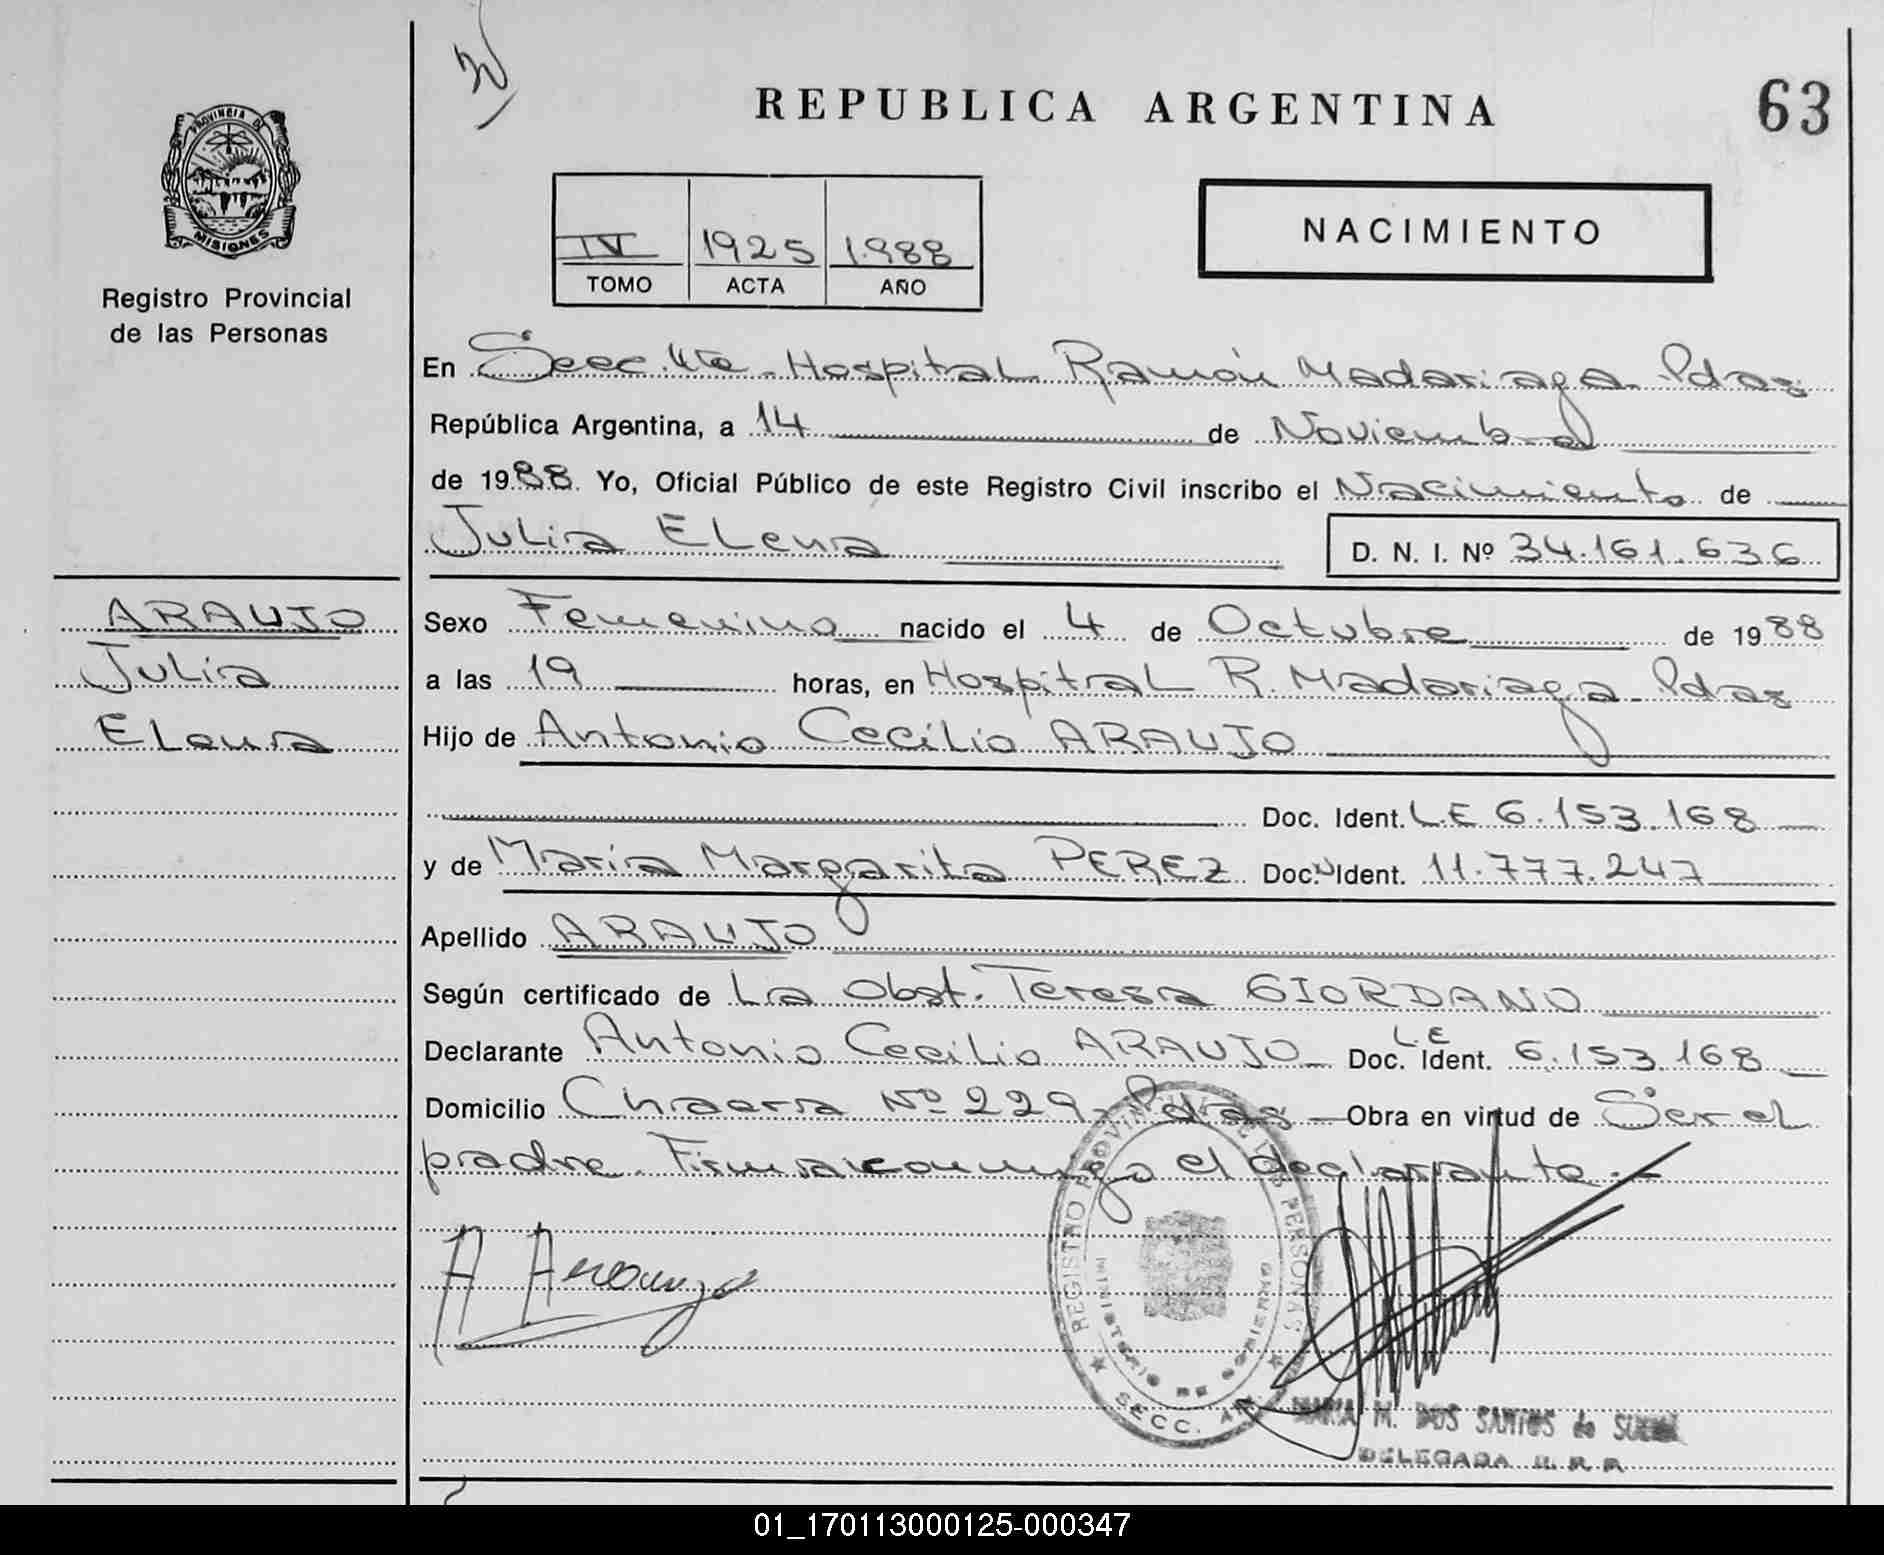 REPUBLICA ARGENTINA
63
PROVINCIA DE
MISIONES
Registro Provincial
de las Personas
IV 1925 1988
TOMO ACTA AÑO
NACIMIENTO
En Secc. 4ta. Hospital Ramón Madariaga - Pdas
República Argentina, a 14 de Noviembre
de 1988 Yo, Oficial Público de este Registro Civil inscribo el Nacimiento de
Julia Elena
D. N. I. Nº 34.161.636
ARAUJO
Julia
Elena
Sexo Femenino nacido el 4 de Octubre de 1988
a las 19 horas, en Hospital R. Madariaga - Pdas
Hijo de Antonio Cecilio ARAUJO
Doc. Ident. L.E 6.153.168
y de María Margarita PEREZ Doc. Ident. 11.777.247
Apellido ARAUJO
Según certificado de La Obst. Teresa GIORDANO
Declarante Antonio Cecilio ARAUJO Doc. Ident. L.E 6.153.168
Domicilio Chacra Nº 229 - Pdas - Obra en virtud de Ser el
padre. Firma conmigo el declarante.-
A Araujo
REGISTRO PROVINCIAL DE LAS PERSONAS
MINISTERIO DE GOBIERNO
SECC.
MARIA M. DOS SANTOS de
DELEGADA
01_170113000125-000347